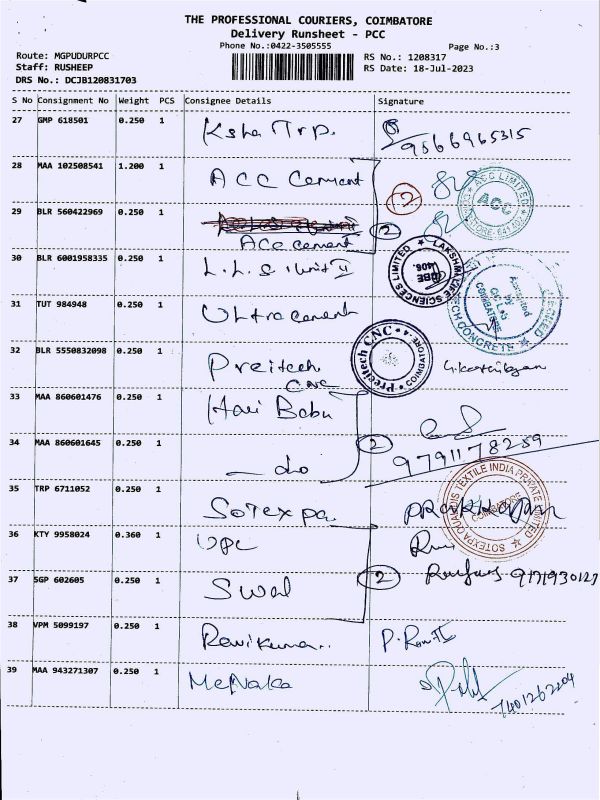 THE PROFESSIONAL COURIERS, COIMBATORE
Delivery Runsheet - PCC
Phone No.:0422-3505555
Page No.:3
Route: MGPUDURPCC
RS No.: 1208317
Staff: RUSHEEP
RS Date: 18-Jul-2023
DRS No.: DCJB120831703
S No Consignment No Weight PCS Consignee Details Signature
27 GMP 618501 0.250 1 Ksha Trp. 9566965315
28 MAA 102508541 1.200 1 ACC Cement 2
ACC LIMITED
ACC
29 BLR 560422969 0.250 1 2
ACC cement
30 BLR 6001958335 0.250 1 L.L.S Unit II
LAKSHMI LIFE SCIENCES LIMITED
31 TUT 984948 0.250 1 Ultra cement
32 BLR 5550832098 0.250 1 Preitech CNC
Preitech CNC
COIMBATORE
33 MAA 860601476 0.250 1 Hari Babu
34 MAA 860601645 0.250 1 do 2
9791178259
35 TRP 6711052 0.250 1 Sotexpa
SOTEXPA QUALIDIS TEXTILE INDIA PRIVATE LIMITED
COIMBATORE
36 KTY 9958024 0.360 1 UPC
37 SGP 602605 0.250 1 Swal 2
38 VPM 5099197 0.250 1 Ravikumar..
39 MAA 943271307 0.250 1